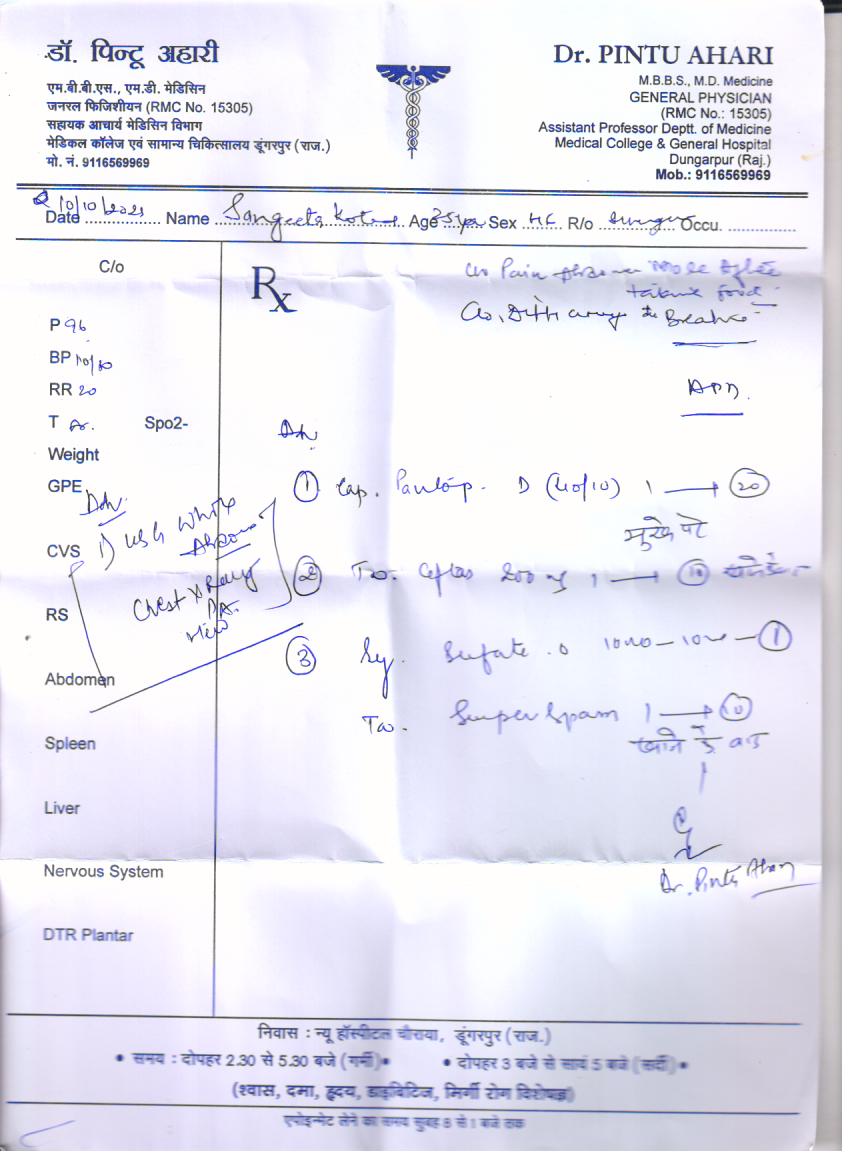 डॉ. पिन्टू अहारी
एम.बी.बी.एस., एम.डी. मेडिसिन
जनरल फिजिशीयन (RMC No. 15305)
सहायक आचार्य मेडिसिन विभाग
मेडिकल कॉलेज एवं सामान्य चिकित्सालय डूंगरपुर (राज.)
मो. नं. 9116569969
Dr. PINTU AHARI
M.B.B.S., M.D. Medicine
GENERAL PHYSICIAN
(RMC No.: 15305)
Assistant Professor Deptt. of Medicine
Medical College & General Hospital
Dungarpur (Raj.)
Mob.: 9116569969
Date 10/10/2021 Name Sangeeta Age Sex R/o Occu.
C/o
Rx
Pain More After
taking food
P 96
BP
RR 20
T Spo2-
Weight
GPE
CVS
RS
Abdomen
Spleen
Liver
Nervous System
DTR Plantar
1) USG Whole
Abdomen
Chest X Ray
PA
view
APD
① Cap. Pantop. D (40/10) 1 → 20
② 200 mg 1 → 10
③ Sy. Sufate. O - 1
Superspam 1 → 10
खाने के बाद
Dr. Pintu Ahari
निवास : न्यू हॉस्पीटल चौराया, डूंगरपुर (राज.)
• समय : दोपहर 2.30 से 5.30 बजे (गर्मी) • • दोपहर 3 बजे से सायं 5 बजे (सर्दी) •
(श्वास, दमा, हृदय, डाइबिटिज, मिर्गी रोग विशेषज्ञ)
एपोइन्मेंट लेने का समय सुबह 8 से 1 बजे तक